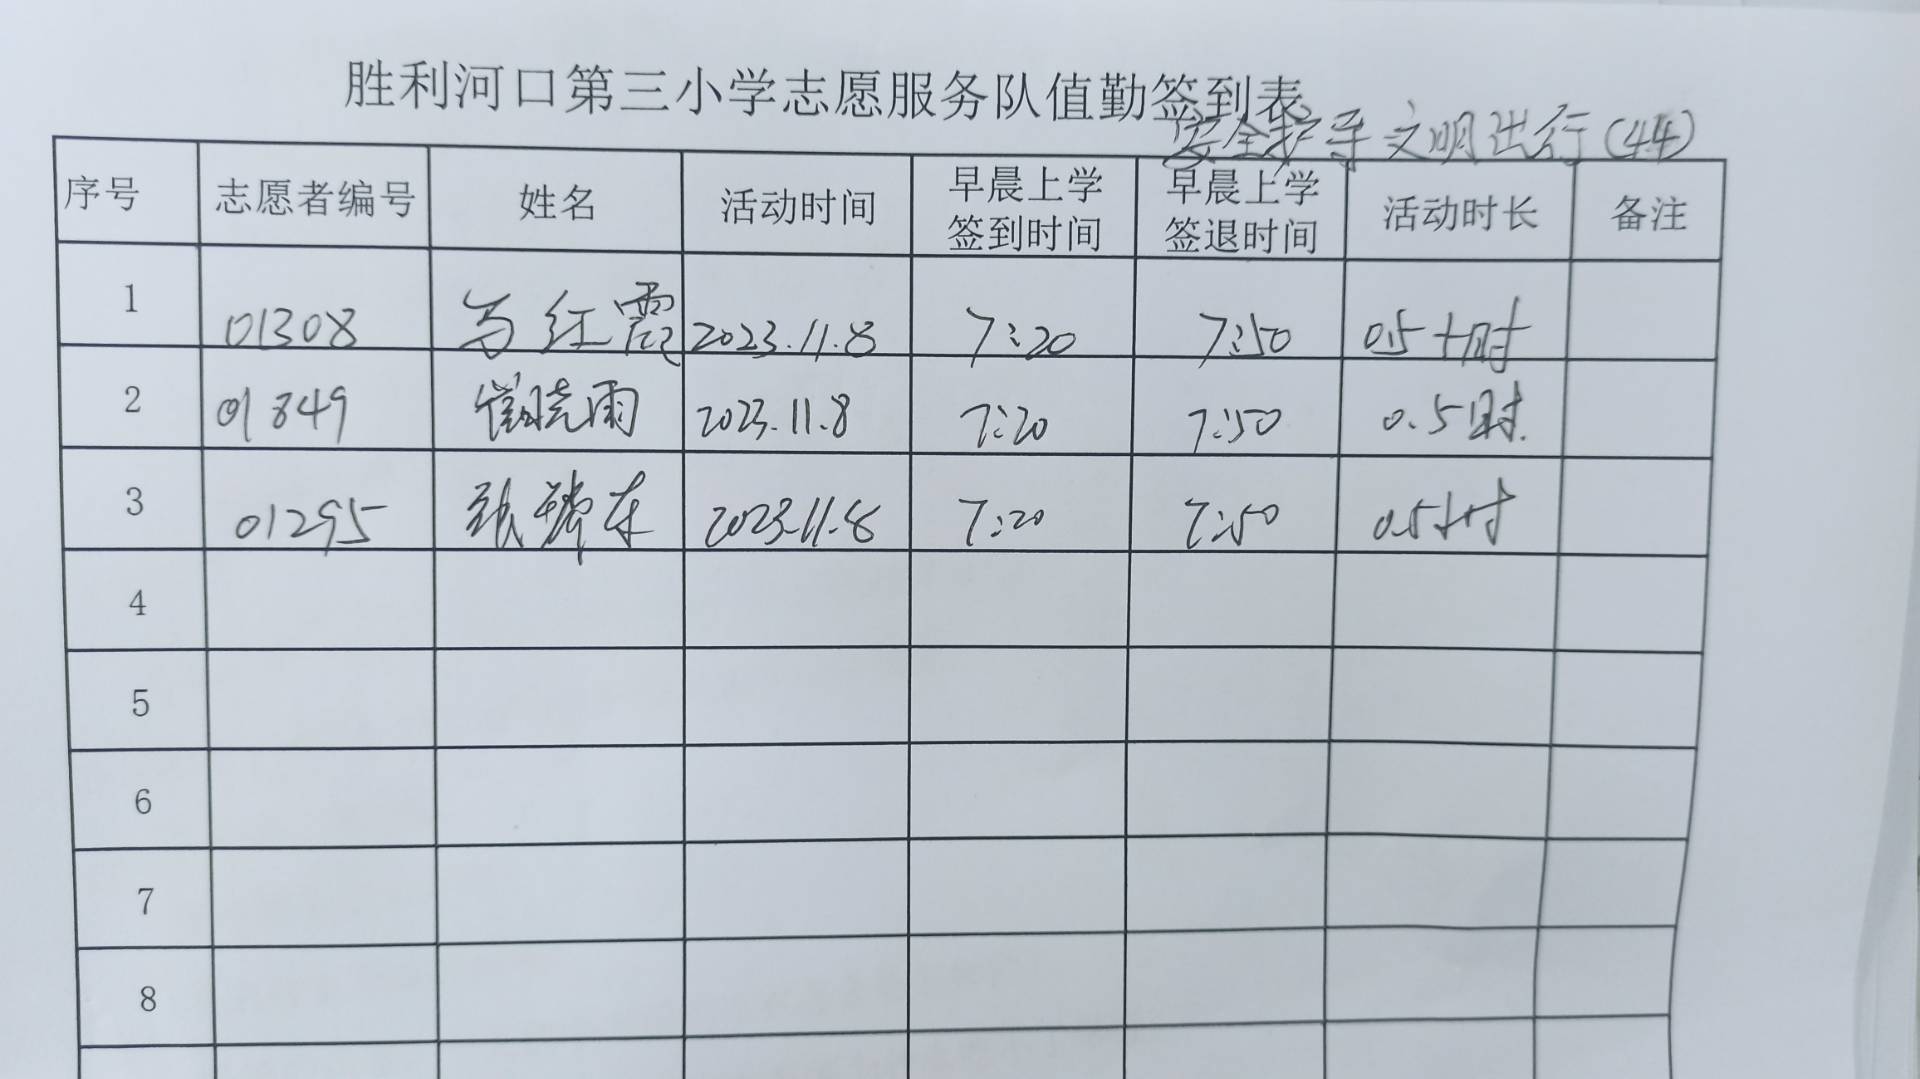 胜利河口第三小学志愿服务队值勤签到表
安全护导 文明出行(44)
序号 志愿者编号 姓名 活动时间 早晨上学签到时间 早晨上学签退时间 活动时长 备注
1 01308 马红霞 2023.11.8 7:20 7:50 0.5小时
2 01849 崔晓雨 2023.11.8 7:20 7:50 0.5时
3 01295 张 东 2023.11.8 7:20 7:50 0.5小时
4
5
6
7
8